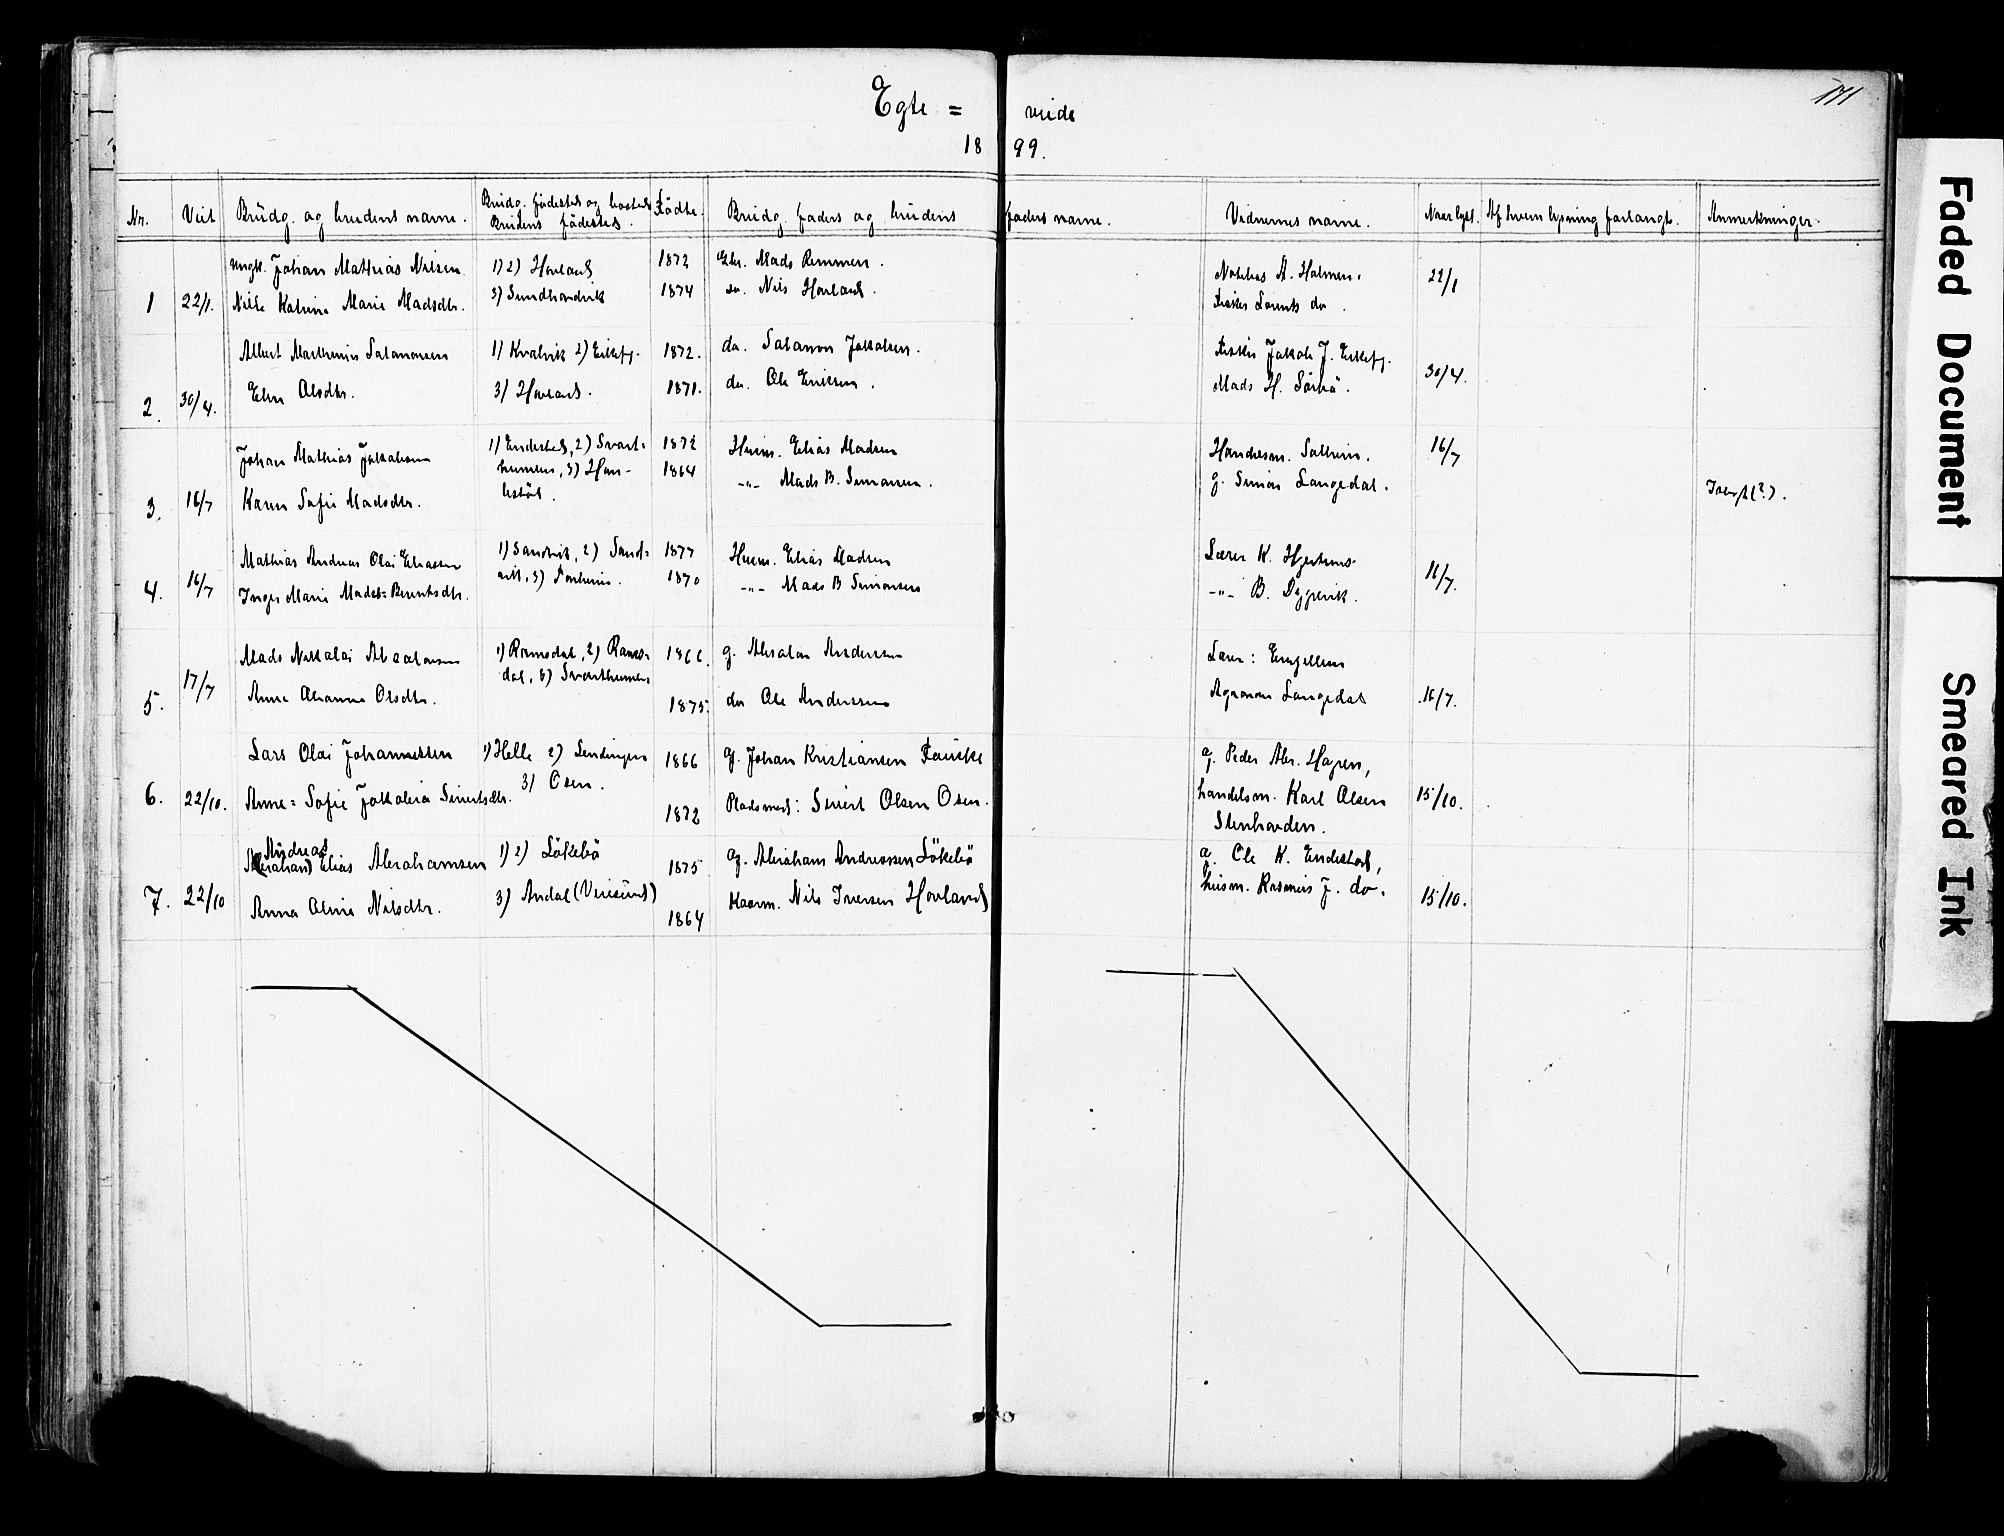 Egte = viede
171
18 99.
Nr. Viet Brudg. og brudens navne. Brudg. fødested og bosted Brudens fødested. Födte. Brudg. faders og brudens faders navne. Vidnernes navne. Naar lyst. Af hvem lysning forlangt. Anmerkninger.
1 22/1. Ungk. Johan Mathias Nilsen 1) 2) Hovland 1872 Gbr. Mads Remmen. A. Holmen. 22/1
Katrine Marie Madsdtr. 3) 1874 do. Nils Hovland. Fisker do.
2. 30/4. Albert Salamonsen 1) Kvalvik 2) 1872. do. Salamon Jakobsen. Fisker Jakob J. 30/4.
Elen Olsdtr. 3) Hovland. 1871. do. Ole Eriksen. Mads H.
3. 16/7 Johan Mathias Jakobsen 1) Endestad, 2) Svart= 1872 Husm. Elias Madsen Handelsm. Solheim. 16/7
humlen, 3) Hom- 1864 -"- Mads B. Simonsen. g. Simon Langedal.
Karen Sofie Madsdtr.
(?).
4. 16/7 Mathias Andreas Olai Eliasen 1) Sandvik, 2) Sand= 1877 Husm. Elias Madsen Lærer K. 16/7.
vik, 3) 1870 -"- Mads B Simonsen -"- B.
Inger Marie Mads= Berentsdtr.
5. 17/7 Mads Nikolai Absalonsen 1) Ramsdal, 2) Rams= 1866. g. Absalon Andersen Lærer:
dal, 3) Svarthumlen
Anne Olsdtr. 1875. do Ole Andersen Agronom Langedal 16/7.
6. 22/10. Lars Olai Johannessen 1) Helle 2) Lendingen 1866 g. Johan Kristiansen Fauske g. Peder Abr. Hagen,
3) Osen.
Anne= Sofie Jakobia Sivertsdtr. 1872 Pladsmd: Sivert Olsen Osen. handelsm. Karl Olsen 15/10.
Stenhovden.
Andreas
7. 22/10 (Abraham) Elias Abrahamsen 1) 2) Løkebø 1875 g. Abraham Andreassen Løkebø g. Ole K. Endestad,
husm. Rasmus J. do.
Anna Oline Nilsdtr. 3) Andal (Vevring) 1864 Kaarm. Nils Iversen Hovland 15/10.
Faded Document
Smeared Ink